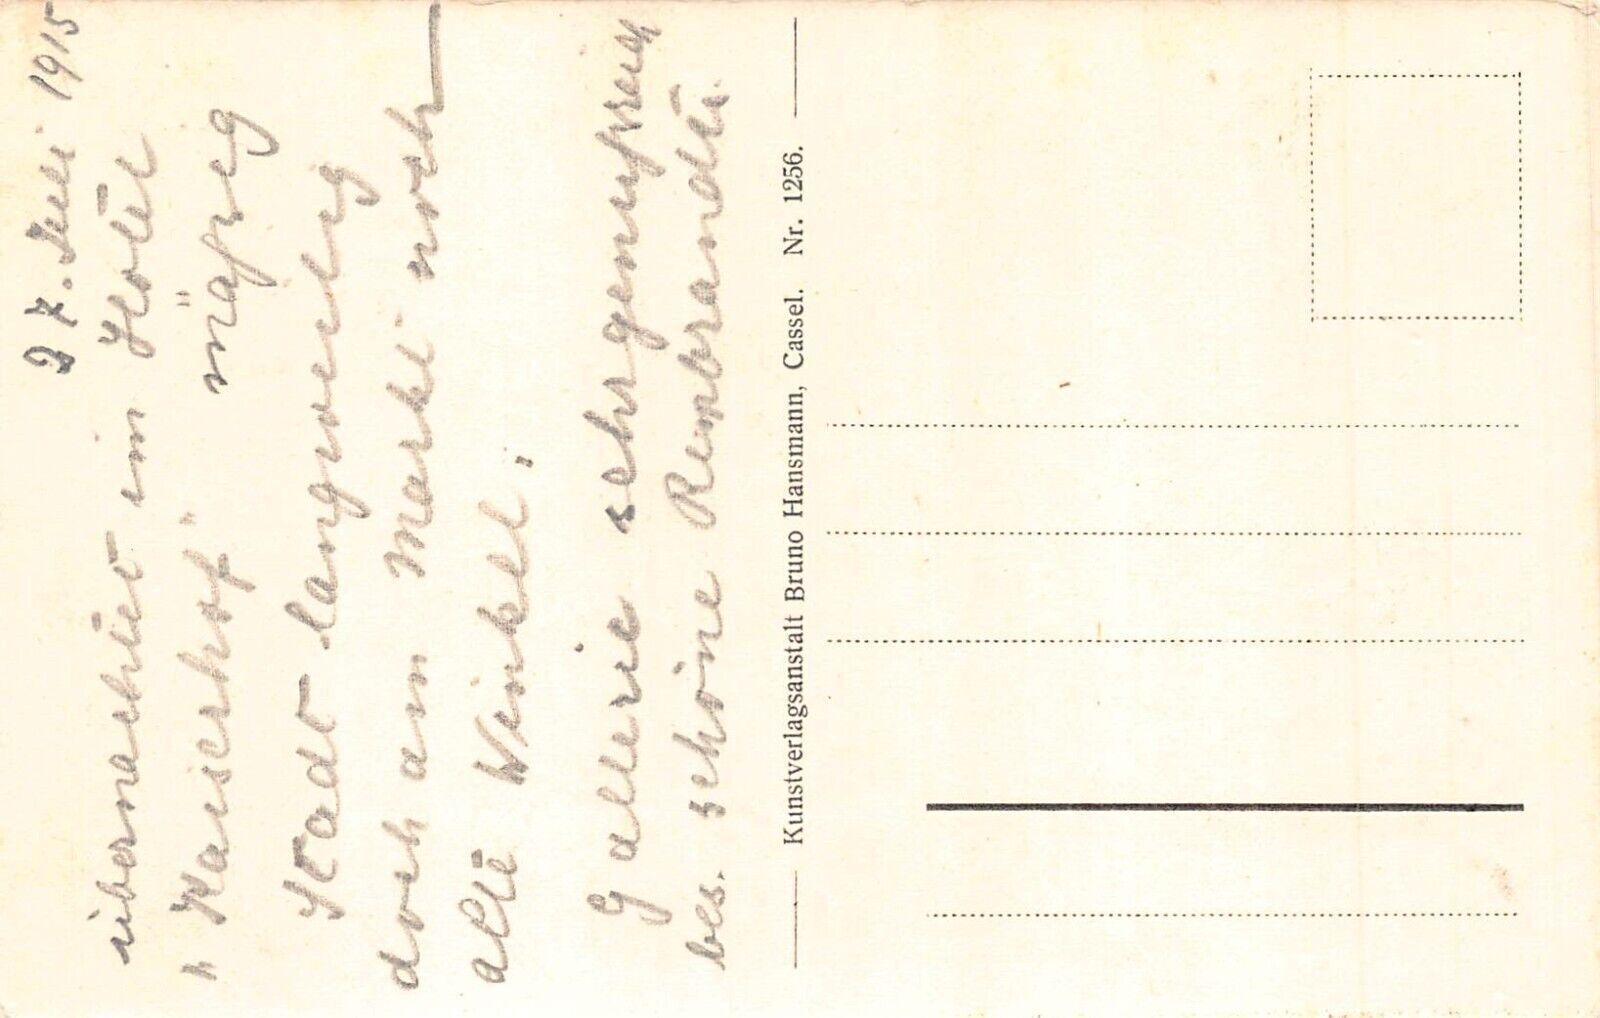 27. Juli 1915
übernachtet im Hotel
"Kaiserhof" mäßig
Stadt langweilig
doch am Markt noch
alte Winkel.
Gallerie sehr genußreich
bes. schöne Rembrandts.
Kunstverlagsanstalt Bruno Hansmann, Cassel. Nr. 1256.